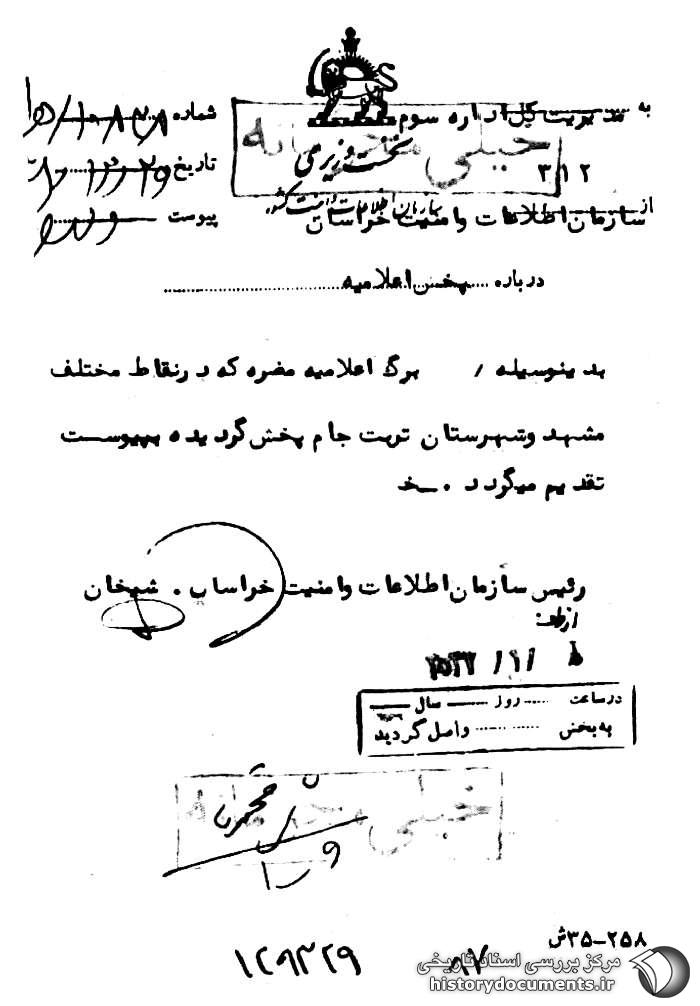 به مدیریت کل اداره سوم
خیلی محرمانه
نخست وزیری
۳۱۲
سازمان اطلاعات و امنیت کشور
از سازمان اطلاعات و امنیت خراسان
شماره
تاریخ
پیوست
درباره پخش اعلامیه
بدینوسیله / برگ اعلامیه مضره که در نقاط مختلف
مشهد و شهرستان تربت جام پخش گردیده بپیوست
تقدیم میگردد . خ
رئیس سازمان اطلاعات و امنیت خراسان . شیخان
از طرف
در ساعت ...... روز ...... سال
به بخش ...... واصل گردید
خیلی محرمانه
۳۵-۲۵۸ش
مرکز بررسی اسناد تاریخی
historydocuments.ir